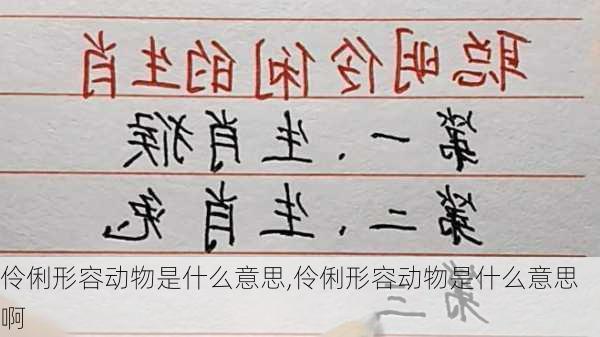 伶俐的生肖
第一、生肖猴
第二、生肖
第三
伶俐形容动物是什么意思,伶俐形容动物是什么意思
啊